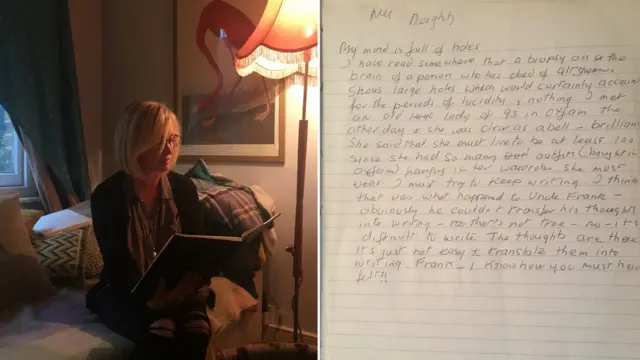 My mind is full of holes
I have read somewhere that a biopsy on the
brain of a person who has died of alzheimers
shows large holes which would certainly account
for the periods of lucidity & nothing I met
an old lady of 93 in oxfam the
other day & she was clear as a bell - brilliant
She said that she must live to be at least 100
since she had so many outfits (bought in
oxfam) hanging in her wardrobe she must
wear I must try to keep writing I think
that was what happened to Uncle Frank -
obviously he couldn't transfer his thoughts
into writing - no that's not true - no - it's
difficult to write The thoughts are there
It's just not easy to translate them into
writing. Frank - I know how you must have
felt!!